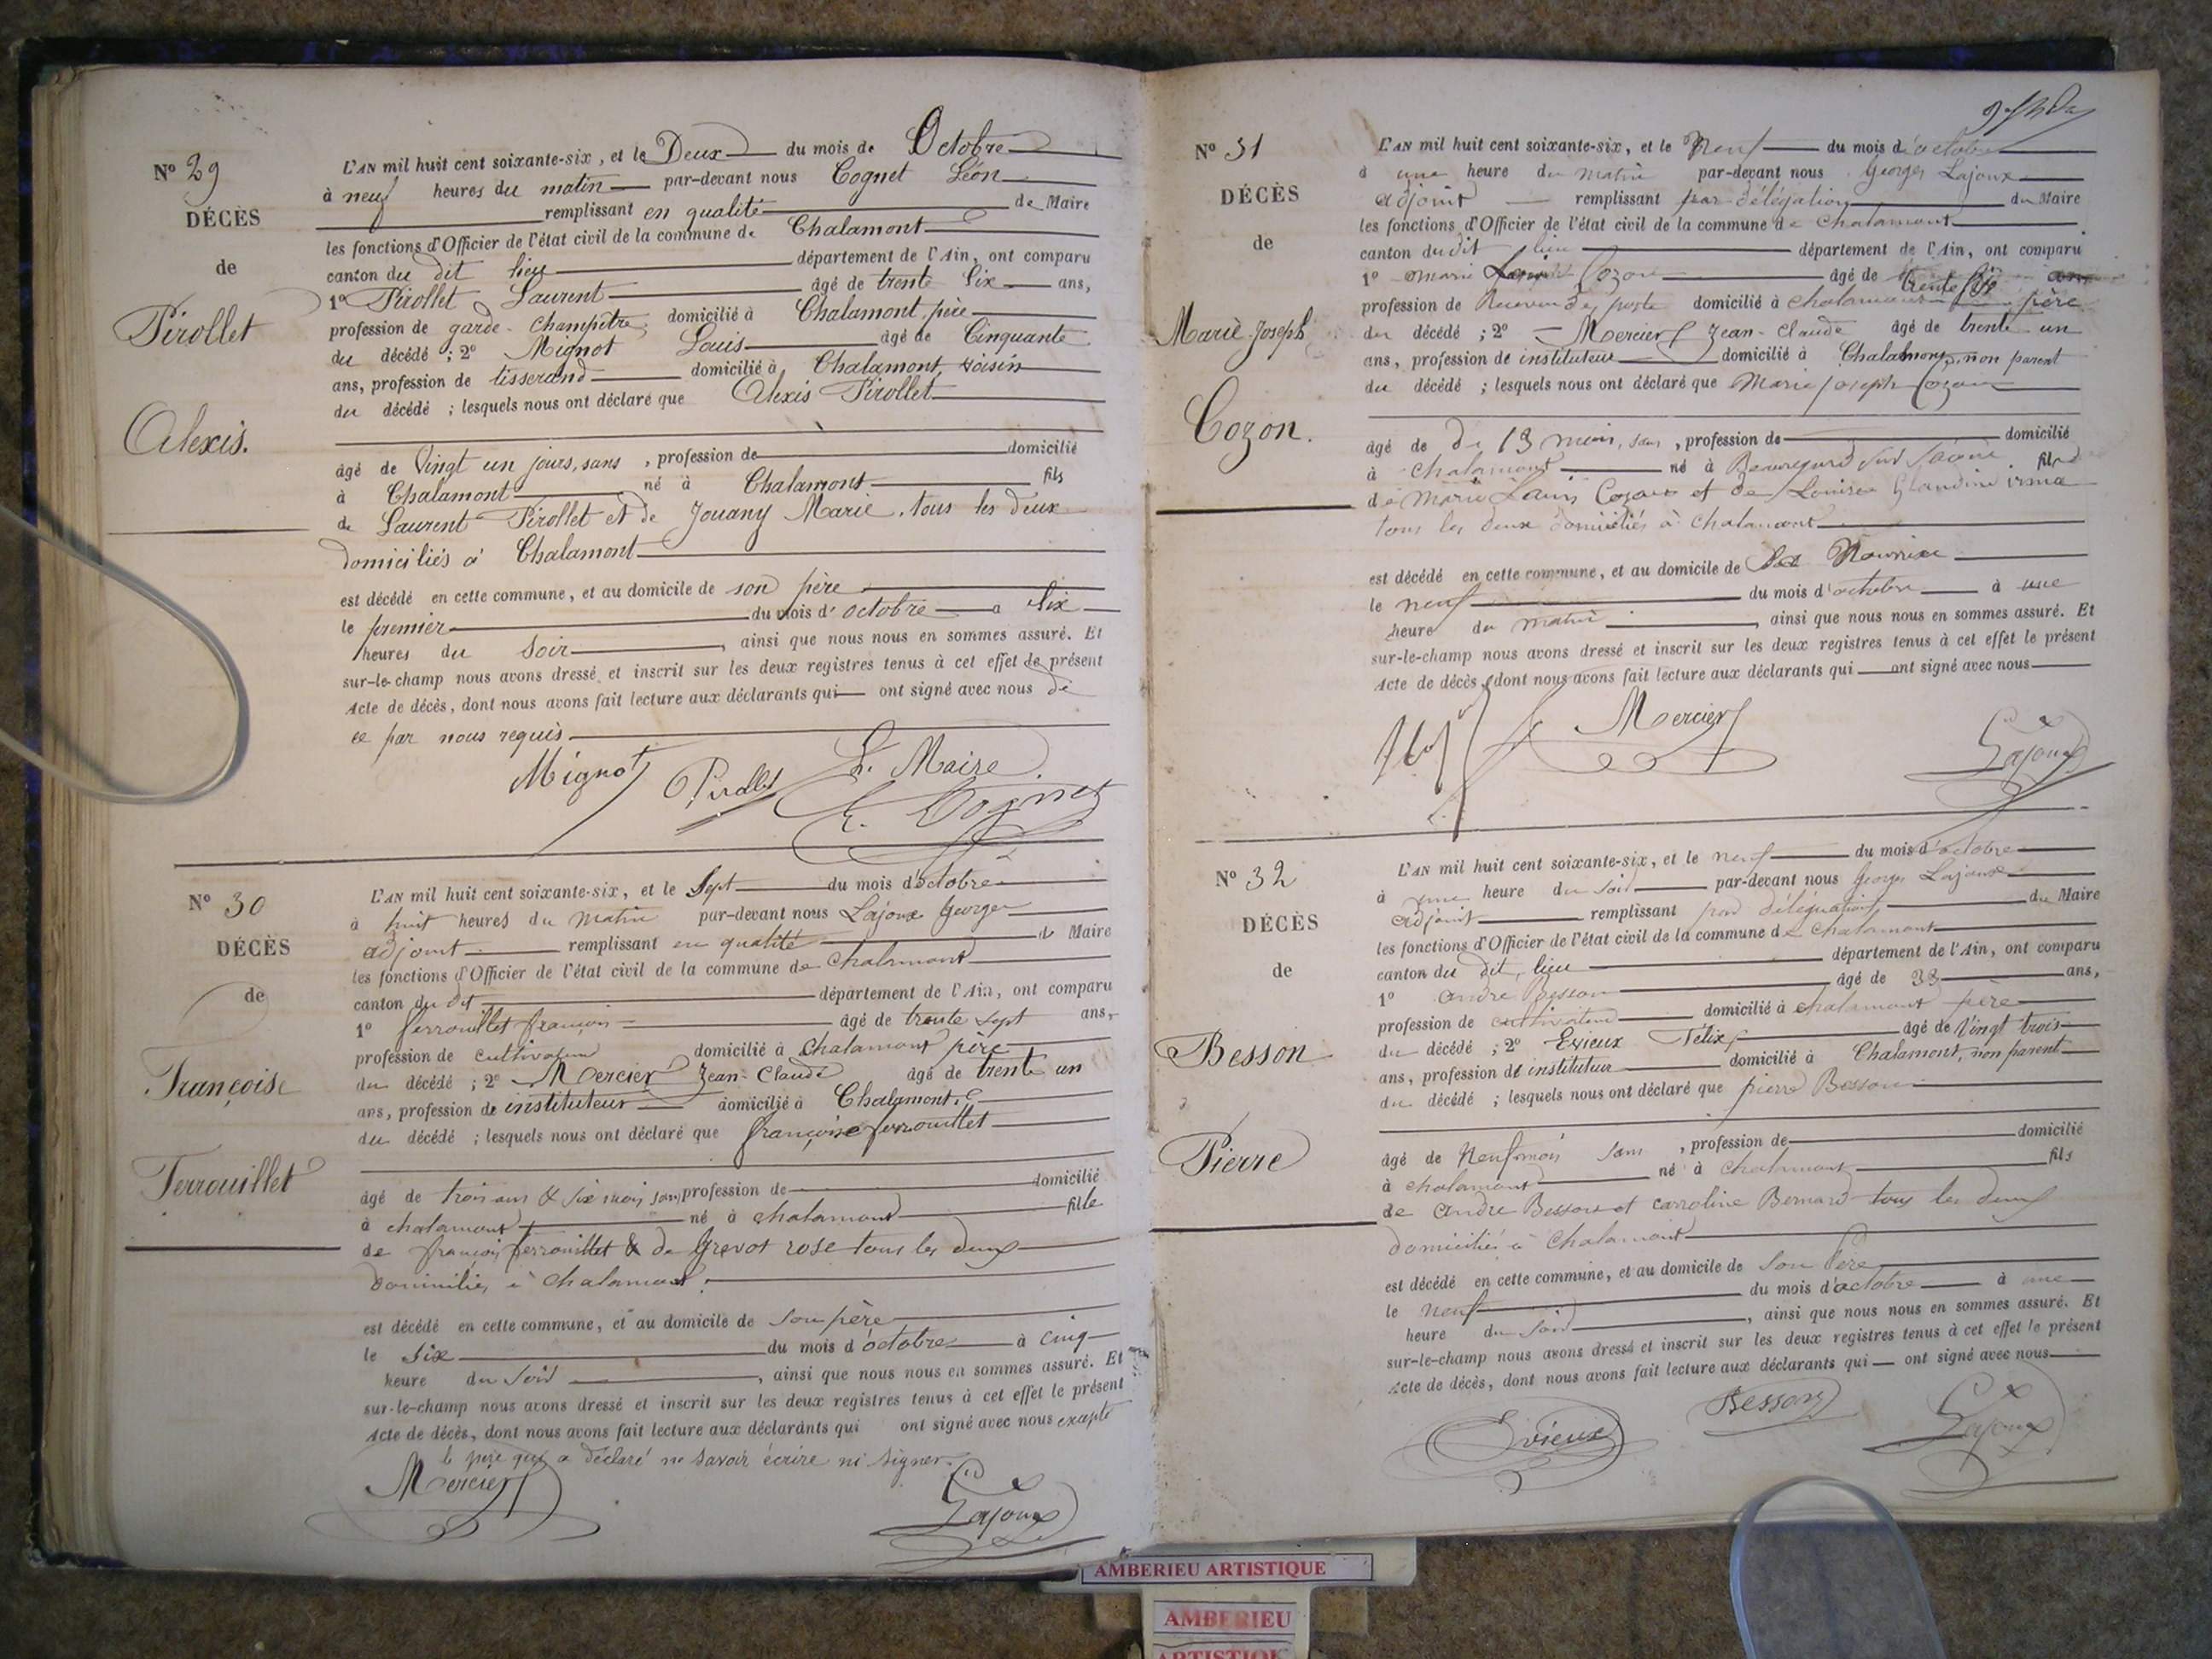 N° 29
DÉCÈS
de
Pirollet
Alexis.
L'AN mil huit cent soixante-six, et le Deux du mois de Octobre
à neuf heures du matin par-devant nous Cognet Léon
remplissant en qualité de Maire
les fonctions d'Officier de l'état civil de la commune de Chalamont
canton du dit lieu département de l'Ain, ont comparu
1° Pirollet Laurent âgé de trente six ans,
profession de garde-champêtre domicilié à Chalamont, père
du décédé ; 2° Mignot Louis âgé de Cinquante
ans, profession de tisserand domicilié à Chalamont, voisin
du décédé ; lesquels nous ont déclaré que Alexis Pirollet
âgé de Vingt un jours, sans , profession de domicilié
à Chalamont né à Chalamont fils
de Laurent Pirollet et de Jouany Marie, tous les deux
domiciliés à Chalamont
est décédé en cette commune, et au domicile de son père
le premier du mois d'octobre à six
heures du soir , ainsi que nous nous en sommes assuré. Et
sur-le-champ nous avons dressé et inscrit sur les deux registres tenus à cet effet le présent
Acte de décès, dont nous avons fait lecture aux déclarants qui ont signé avec nous de
ce par nous requis
Mignot Pirollet Le Maire
L. Cognet
N° 30
DÉCÈS
de
Françoise
Ferrouillet
L'AN mil huit cent soixante-six, et le Sept du mois d'octobre
à huit heures du matin par-devant nous Lajoux Georges
adjoint remplissant en qualité de Maire
les fonctions d'Officier de l'état civil de la commune de Chalamont
canton du dit département de l'Ain, ont comparu
1° ferrouillet françois âgé de trente sept ans,
profession de cultivateur domicilié à Chalamont père
du décédé ; 2° Mercier Jean-Claude âgé de trente un
ans, profession de instituteur domicilié à Chalamont
du décédé ; lesquels nous ont déclaré que françoise ferrouillet
âgé de trois ans & six mois, sans profession de domicilié
à chalamont né à chalamont fille
de françois ferrouillet & de Grevot rose tous les deux
domiciliés à chalamont.
est décédé en cette commune, et au domicile de son père
le six du mois d'octobre à cinq
heure du soir , ainsi que nous nous en sommes assuré. Et
sur-le-champ nous avons dressé et inscrit sur les deux registres tenus à cet effet le présent
Acte de décès, dont nous avons fait lecture aux déclarants qui ont signé avec nous excepté
le père qui a déclaré ne savoir écrire ni signer.
Mercier Lajoux
N° 31
DÉCÈS
de
Marie-Joseph
Cozon.
L'AN mil huit cent soixante-six, et le Neuf du mois d'octobre
à une heure du matin par-devant nous Georges Lajoux
adjoint remplissant par délégation du Maire
les fonctions d'Officier de l'état civil de la commune de Chalamont
canton du dit lieu département de l'Ain, ont comparu
1° Marie Cozon âgé de trente
profession de Receveur des poste domicilié à Chalamont père
du décédé ; 2° Mercier Jean-Claude âgé de trente un
ans, profession de instituteur domicilié à Chalamont, non parent
du décédé ; lesquels nous ont déclaré que Marie joseph Cozon
âgé de de 13 mois, sans , profession de domicilié
à Chalamont né à Beauregard sur Saône fils
de Marie Louis Cozon et de Louise Glandine irma
tous les deux domiciliés à Chalamont
est décédé en cette commune, et au domicile de Nourrice
le neuf du mois d'octobre à une
heure du matin , ainsi que nous nous en sommes assuré. Et
sur-le-champ nous avons dressé et inscrit sur les deux registres tenus à cet effet le présent
Acte de décès, dont nous avons fait lecture aux déclarants qui ont signé avec nous
Mercier Lajoux
N° 32
DÉCÈS
de
Besson
Pierre
L'AN mil huit cent soixante-six, et le neuf du mois d'octobre
à une heure du soir par-devant nous Georges Lajoux
adjoint remplissant par délégation du Maire
les fonctions d'Officier de l'état civil de la commune de Chalamont
canton du dit lieu département de l'Ain, ont comparu
1° andré Besson âgé de 33 ans,
profession de cultivateur domicilié à chalamont père
du décédé ; 2° Evieux Félix âgé de Vingt trois
ans, profession de instituteur domicilié à Chalamont, non parent
du décédé ; lesquels nous ont déclaré que pierre Besson
âgé de Neuf mois sans , profession de domicilié
à chalamont né à chalamont fils
de andré Besson et carroline Bernard tous les deux
domiciliés à Chalamont
est décédé en cette commune, et au domicile de son Père
le neuf du mois d'octobre à une
heure du soir , ainsi que nous nous en sommes assuré. Et
sur-le-champ nous avons dressé et inscrit sur les deux registres tenus à cet effet le présent
Acte de décès, dont nous avons fait lecture aux déclarants qui ont signé avec nous
Evieux Besson Lajoux
AMBERIEU ARTISTIQUE
AMBERIEU
ARTISTIQUE